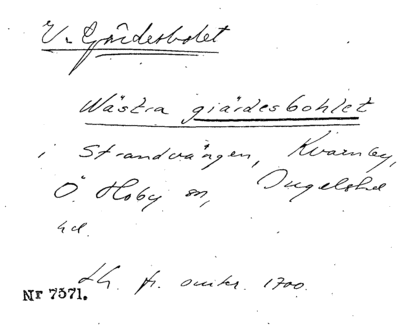 V. Gärdesbolet
Wästra giärdesbohlet
i Strandvången, Kvarnby,
Ö. Hoby sn, Ingelstad
hd.
LH. fr. omkr. 1700.
Nr 7371.